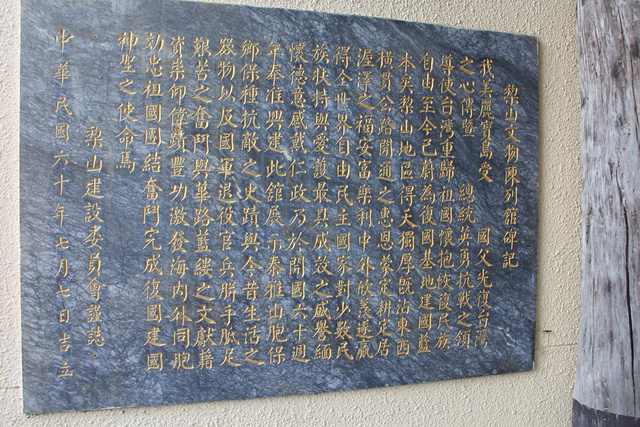 梨山文物陳列館碑記
我美麗寶島受　　國父光復台灣
之心傳暨　　總統英勇抗戰之領
導使台灣重歸祖國懷抱恢復民族
自由至今已蔚為復國基地建國藍
本矣梨山地區得天獨厚既沾東西
橫貫公路開通之惠恩蒙定耕定居
渥澤之福安富樂利中外欣羡遂贏
得全世界自由民主國家對少數民
族扶持與愛護最具成效之感譽緬
懷德意感戴仁政乃於開國六十週
年奉准興建此館展示泰雅山胞保
鄉保種抗敵之史蹟與今昔生活之
器物以及國軍退役官兵胼手胝足
艱苦之奮鬥與蓽路藍縷之文獻藉
資崇仰偉蹟豐功激發海內外同胞
効忠祖國團結奮鬥完成復國建國
神聖之使命焉
梨山建設委員會謹誌。
中華民國六十年七月七日吉立